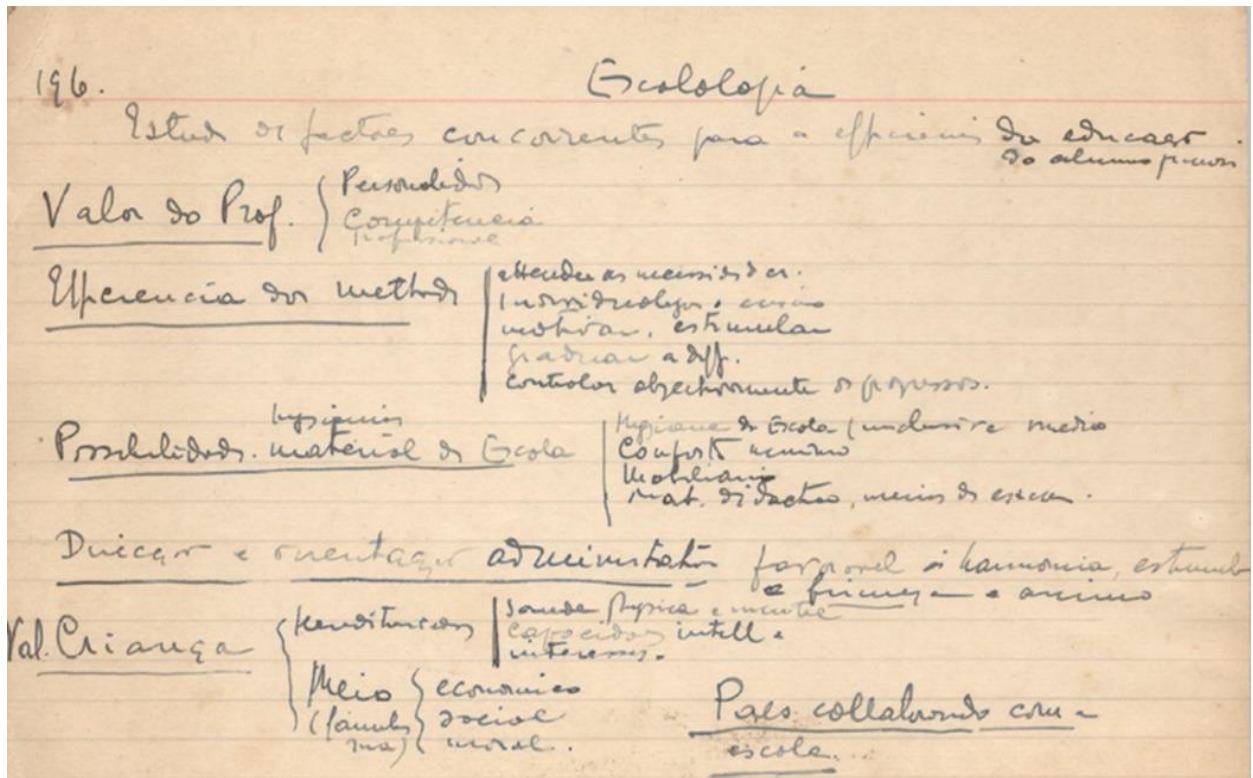 196.
Escolologia
Estudo de factores concorrentes para a efficiencia da educação
do alumno
Valor do Prof.
Personalidade
Competencia
profissional
Efficiencia dos methodos
attender as necessidades.
Individualizar o ensino
motivar, estimular
graduar a diff.
controlar objectivamente os progressos.
hygienicas
Possibilidade. material da Escola
Hygiene da Escola (inclusive medico
Conforto minimo
Mobiliario
mat. didactico, meios de
Direcção e orientação administrativa favoravel á harmonia, estimulo
e a
Val. Criança
hereditariedade
Saude physica e mental
capacidade intell e
interesses.
Meio
(familia
rua)
economico
social
moral.
Paes collaborando com a
escola.